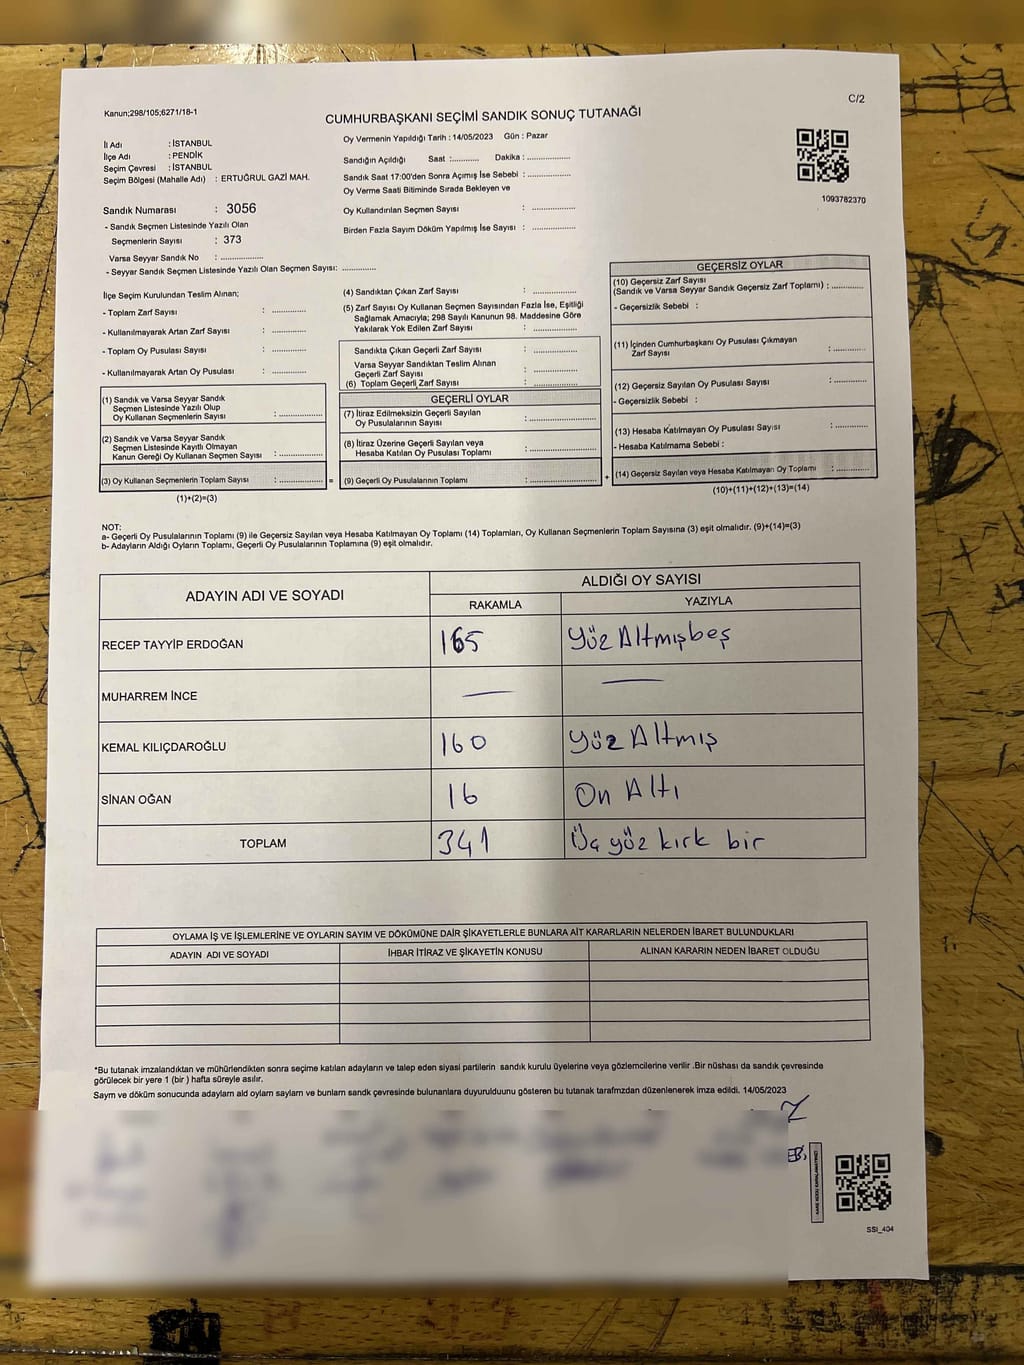 Kanun;298/105;6271/18-1
C/2
CUMHURBAŞKANI SEÇİMİ SANDIK SONUÇ TUTANAĞI
İl Adı : İSTANBUL
İlçe Adı : PENDİK
Seçim Çevresi : İSTANBUL
Seçim Bölgesi (Mahalle Adı) : ERTUĞRUL GAZİ MAH.
Sandık Numarası : 3056
- Sandık Seçmen Listesinde Yazılı Olan
Seçmenlerin Sayısı : 373
Varsa Seyyar Sandık No : ..............
- Seyyar Sandık Seçmen Listesinde Yazılı Olan Seçmen Sayısı: ............
Oy Vermenin Yapıldığı Tarih : 14/05/2023 Gün : Pazar
Sandığın Açıldığı Saat :.......... Dakika : ..............
Sandık Saat 17:00'den Sonra Açımış İse Sebebi : ..............
Oy Verme Saati Bitiminde Sırada Bekleyen ve
Oy Kullandırılan Seçmen Sayısı : ..............
Birden Fazla Sayım Döküm Yapılmış İse Sayısı : ..............
1093782370
İlçe Seçim Kurulundan Teslim Alınan;
- Toplam Zarf Sayısı : ............
- Kullanılmayarak Artan Zarf Sayısı : ............
- Toplam Oy Pusulası Sayısı : ............
- Kullanılmayarak Artan Oy Pusulası : ............
(1) Sandık ve Varsa Seyyar Sandık
Seçmen Listesinde Yazılı Olup
Oy Kullanan Seçmenlerin Sayısı : ..............
(2) Sandık ve Varsa Seyyar Sandık
Seçmen Listesinde Kayıtlı Olmayan
Kanun Gereği Oy Kullanan Seçmen Sayısı : ..............
(3) Oy Kullanan Seçmenlerin Toplam Sayısı : .............. =
(1)+(2)=(3)
(4) Sandıktan Çıkan Zarf Sayısı : ..............
(5) Zarf Sayısı Oy Kullanan Seçmen Sayısından Fazla İse, Eşitliği
Sağlamak Amacıyla; 298 Sayılı Kanunun 98. Maddesine Göre
Yakılarak Yok Edilen Zarf Sayısı : ..............
Sandıkta Çıkan Geçerli Zarf Sayısı : ..............
Varsa Seyyar Sandıktan Teslim Alınan
Geçerli Zarf Sayısı : ..............
(6) Toplam Geçerli Zarf Sayısı : ..............
GEÇERLİ OYLAR
(7) İtiraz Edilmeksizin Geçerli Sayılan
Oy Pusulasının Sayısı : ..............
(8) İtiraz Üzerine Geçerli Sayılan veya
Hesaba Katılan Oy Pusulası Toplamı : ..............
(9) Geçerli Oy Pusulalarının Toplamı : .............. +
GEÇERSİZ OYLAR
(10) Geçersiz Zarf Sayısı
(Sandık ve Varsa Seyyar Sandık Geçersiz Zarf Toplamı) : ..........
- Geçersizlik Sebebi :
(11) İçinden Cumhurbaşkanı Oy Pusulası Çıkmayan
Zarf Sayısı : ..........
(12) Geçersiz Sayılan Oy Pusulası Sayısı : ..........
- Geçersizlik Sebebi :
(13) Hesaba Katılmayan Oy Pusulası Sayısı : ..........
- Hesaba Katılmama Sebebi :
(14) Geçersiz Sayılan veya Hesaba Katılmayan Oy Toplamı : ..........
(10)+(11)+(12)+(13)=(14)
NOT:
a- Geçerli Oy Pusulalarının Toplamı (9) ile Geçersiz Sayılan veya Hesaba Katılmayan Oy Toplamı (14) Toplamları, Oy Kullanan Seçmenlerin Toplam Sayısına (3) eşit olmalıdır. (9)+(14)=(3)
b- Adayların Aldığı Oyların Toplamı, Geçerli Oy Pusulalarının Toplamına (9) eşit olmalıdır.
ADAYIN ADI VE SOYADI ALDIĞI OY SAYISI
RAKAMLA YAZIYLA
RECEP TAYYİP ERDOĞAN 165 Yüz Altmışbeş
MUHARREM İNCE — —
KEMAL KILIÇDAROĞLU 160 Yüz Altmış
SİNAN OĞAN 16 On Altı
TOPLAM 341 Üç yüz kırk bir
OYLAMA İŞ VE İŞLEMLERİNE VE OYLARIN SAYIM VE DÖKÜMÜNE DAİR ŞİKAYETLERLE BUNLARA AİT KARARLARIN NELERDEN İBARET BULUNDUKLARI
ADAYIN ADI VE SOYADI İHBAR İTİRAZ VE ŞİKAYETİN KONUSU ALINAN KARARIN NEDEN İBARET OLDUĞU
*Bu tutanak imzalandıktan ve mühürlendikten sonra seçime katılan adayların ve talep eden siyasi partilerin sandık kurulu üyelerine veya gözlemcilerine verilir .Bir nüshası da sandık çevresinde
görülecek bir yere 1 (bir ) hafta süreyle asılır.
Saym ve döküm sonucunda adaylam ald oylam saylam ve bunlam sandk çevresinde bulunanlara duyurulduunu gösteren bu tutanak tarafmzdan düzenlenerek imza edildi. 14/05/2023
SSI_404